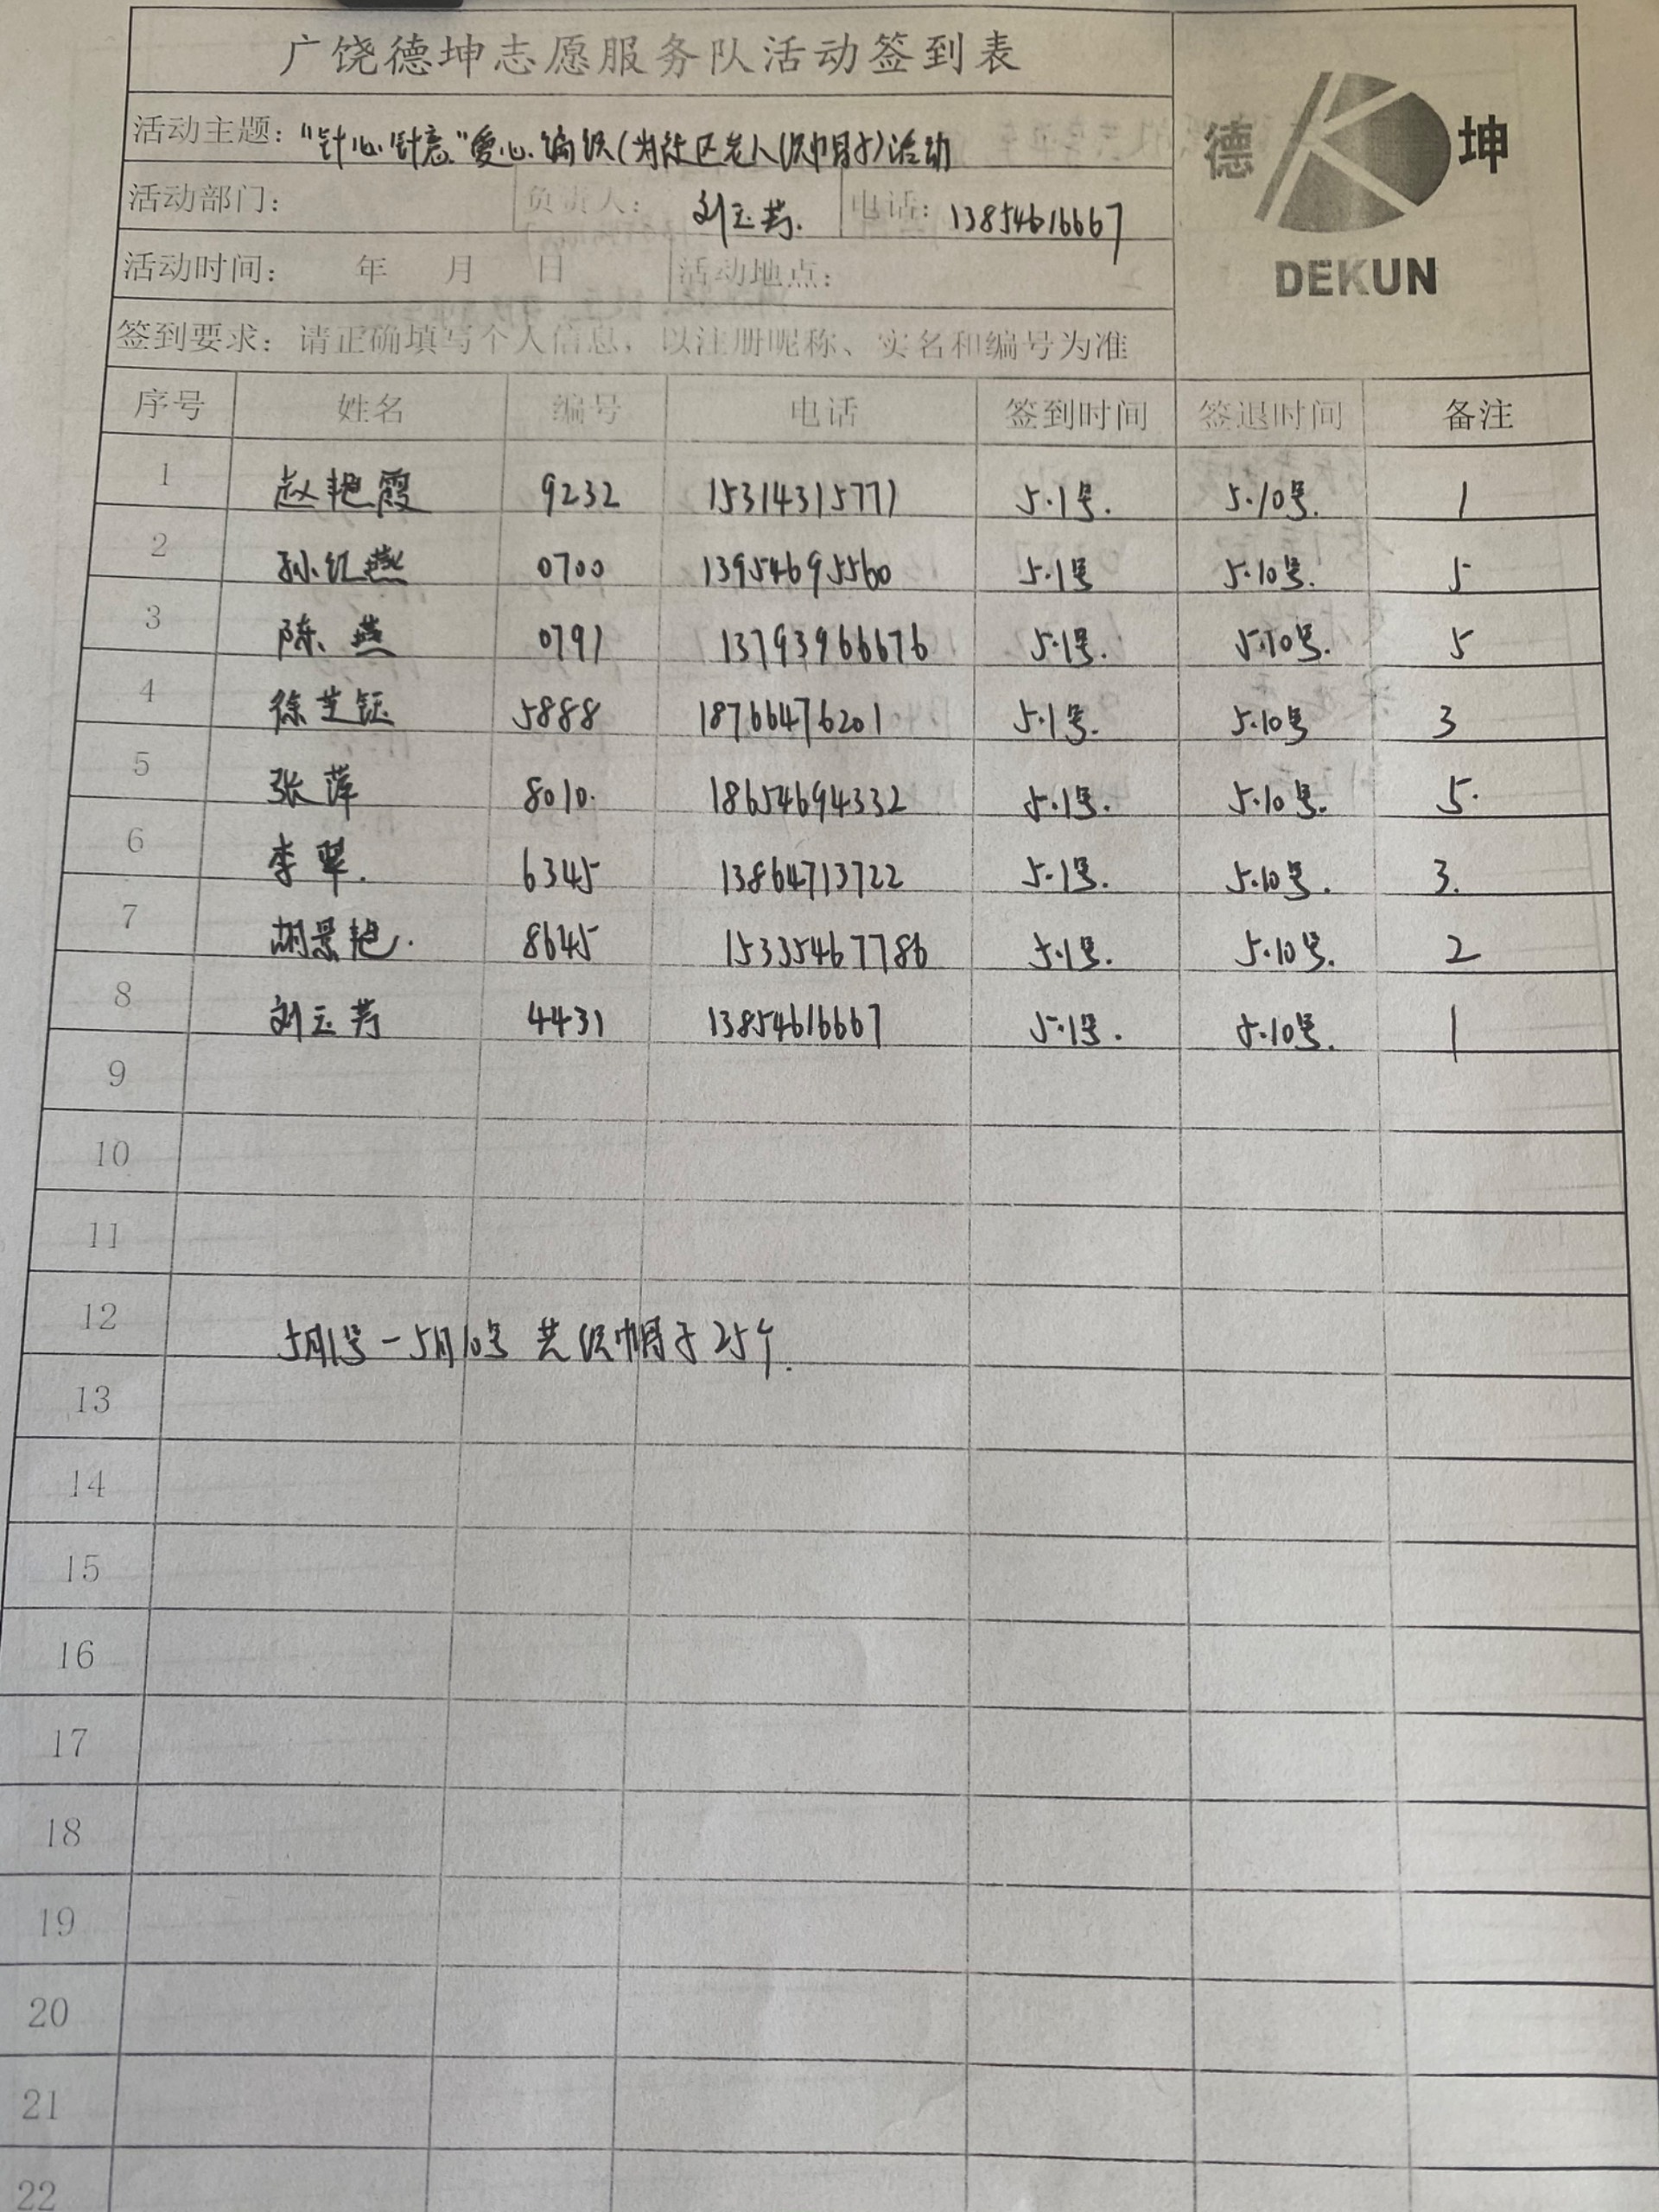 广饶德坤志愿服务队活动签到表
活动主题: "针心针意"爱心编织(为社区老人织帽子)活动
德 坤
DEKUN
活动部门: 负责人: 刘玉芳. 电话: 13854616667
活动时间: 年 月 日 活动地点:
签到要求: 请正确填写个人信息, 以注册昵称、实名和编号为准
序号 姓名 编号 电话 签到时间 签退时间 备注
1 赵艳霞 9232 15314315771 5.1号. 5.10号. 1
2 孙红燕 0700 13954695560 5.1号 5.10号. 5
3 陈燕 0791 13793966676 5.1号. 5.10号. 5
4 徐芝钰 5888 18766476201 5.1号. 5.10号 3
5 张萍 8010. 18654694332 5.1号. 5.10号. 5.
6 李翠. 6345 13864713722 5.1号. 5.10号. 3.
7 胡景艳. 8645 15335467786 5.1号. 5.10号. 2
8 刘玉芳 4431 13854616667 5.1号. 5.10号. 1
9
10
11
12 5月1号-5月10号 共织帽子25个.
13
14
15
16
17
18
19
20
21
22